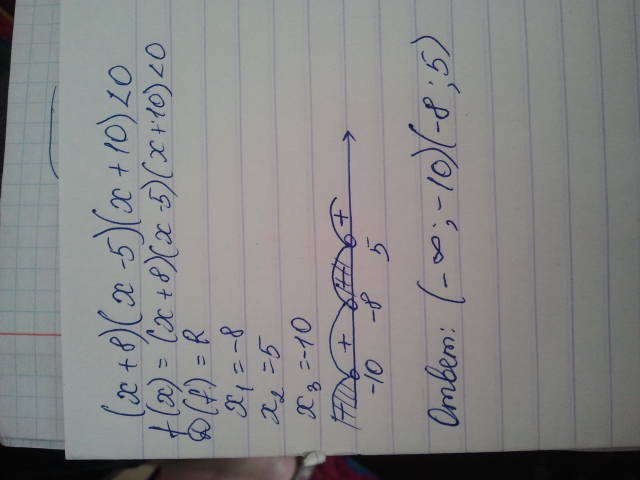 (x+8)(x-5)(x+10)<0
f(x)=(x+8)(x-5)(x+10)<0
D(f)=R
x₁=-8
x₂=5
x₃=-10
+ +
-10 -8 5
Ответ: (-∞;-10)(-8;5)